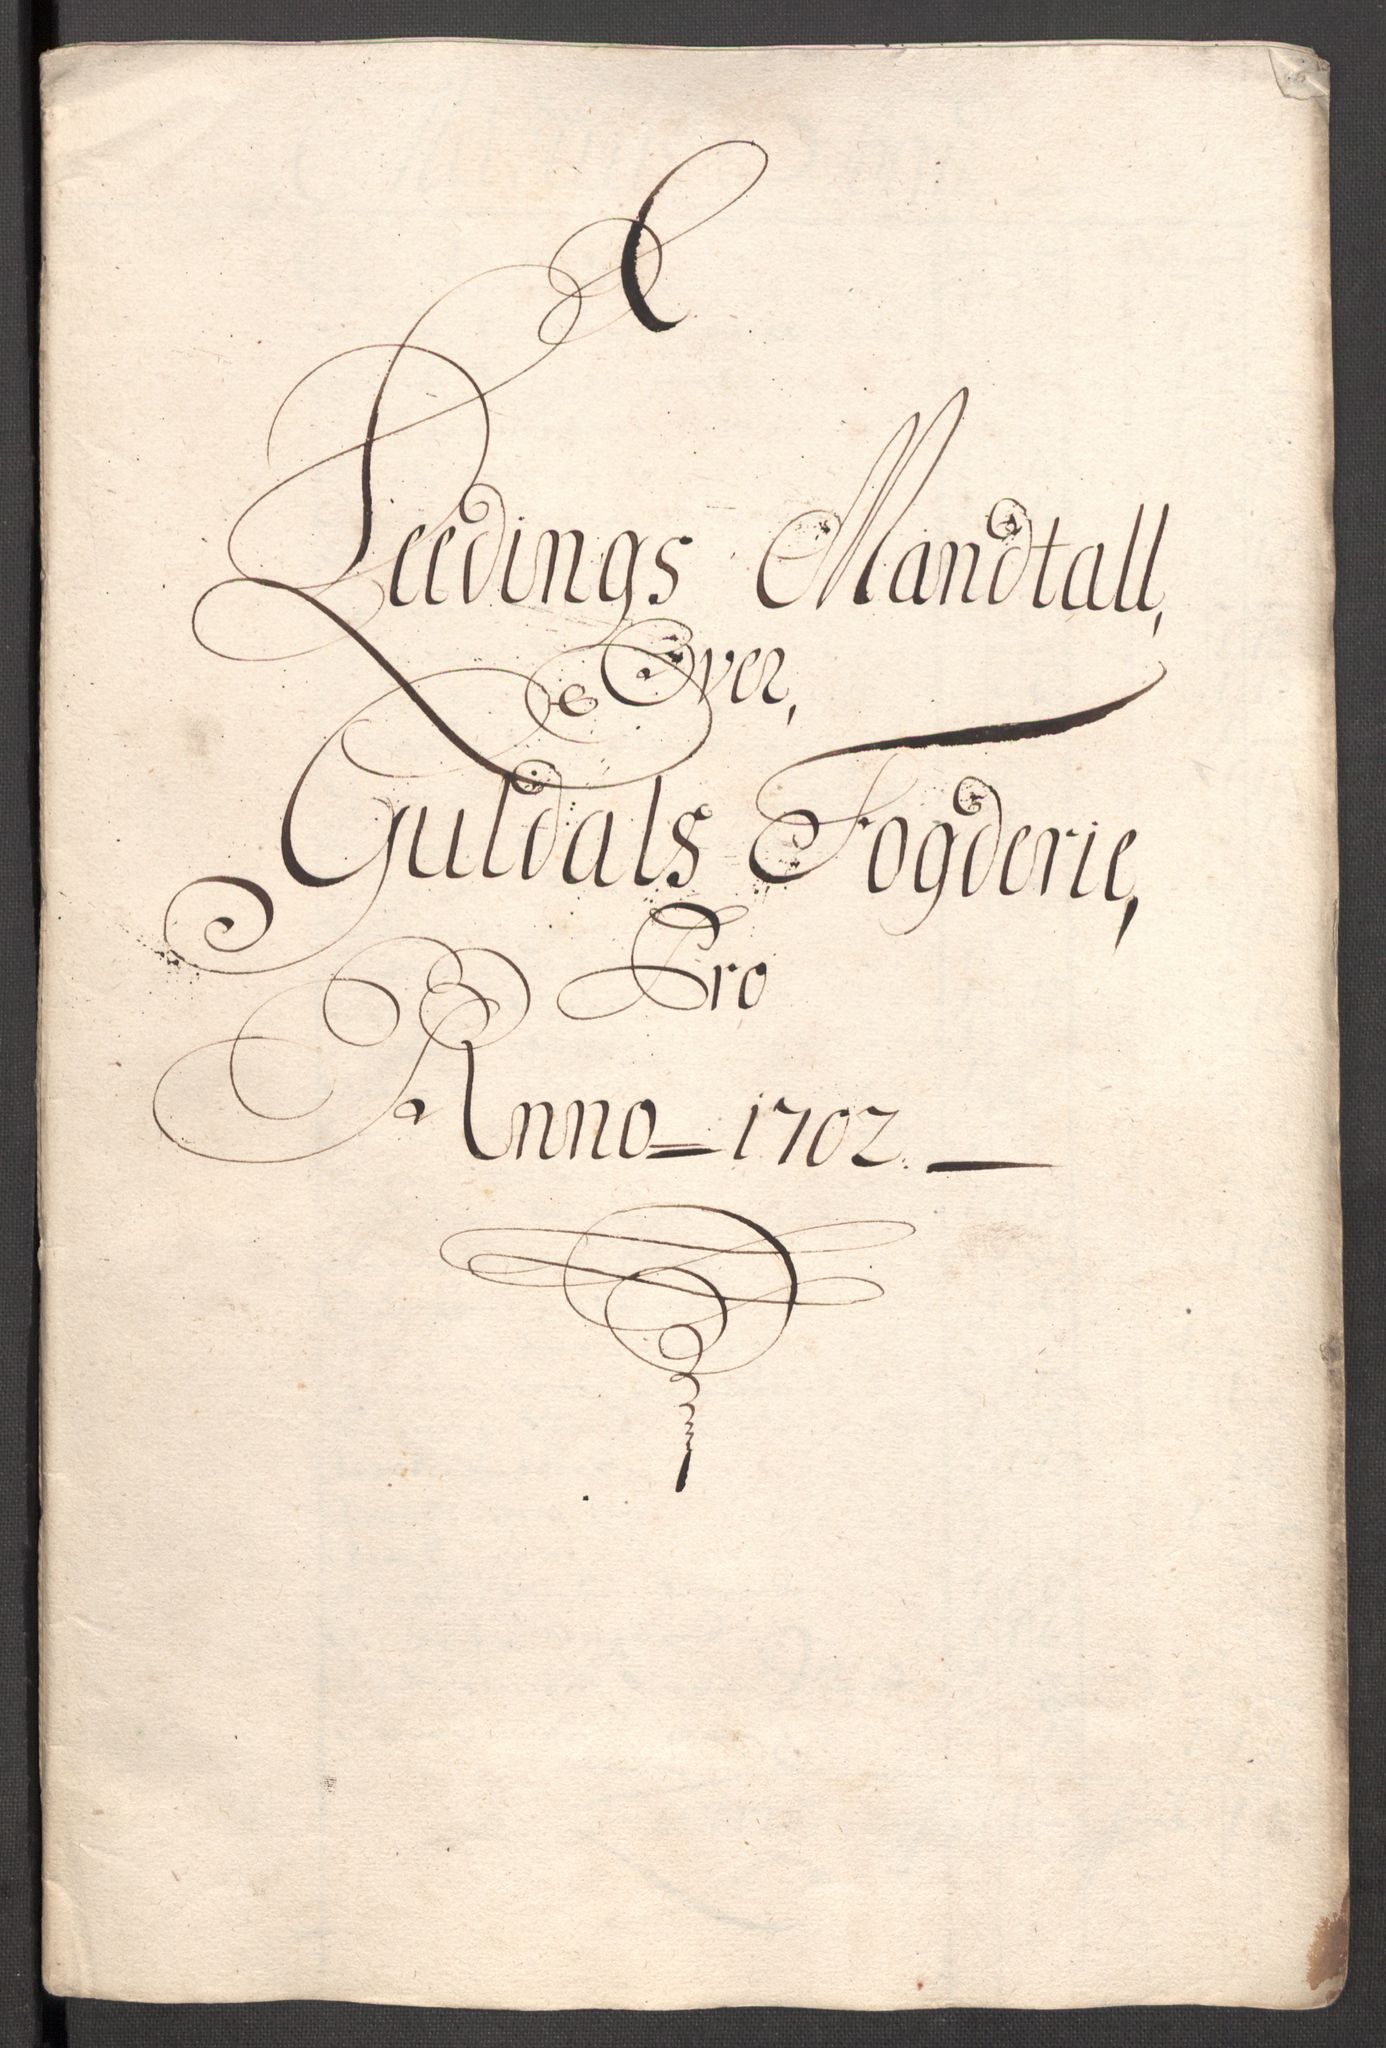 C
Leedings Mandtall,
Over,
Guldals Fogderie,
Pro
Anno 1702.